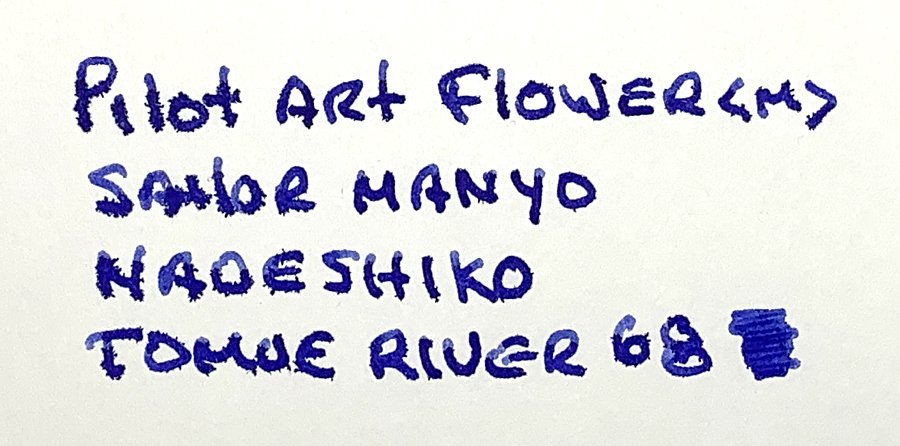 Pilot ART Flower <M>
SAILOR MANYO
NADESHIKO
TOMOE RIVER 68